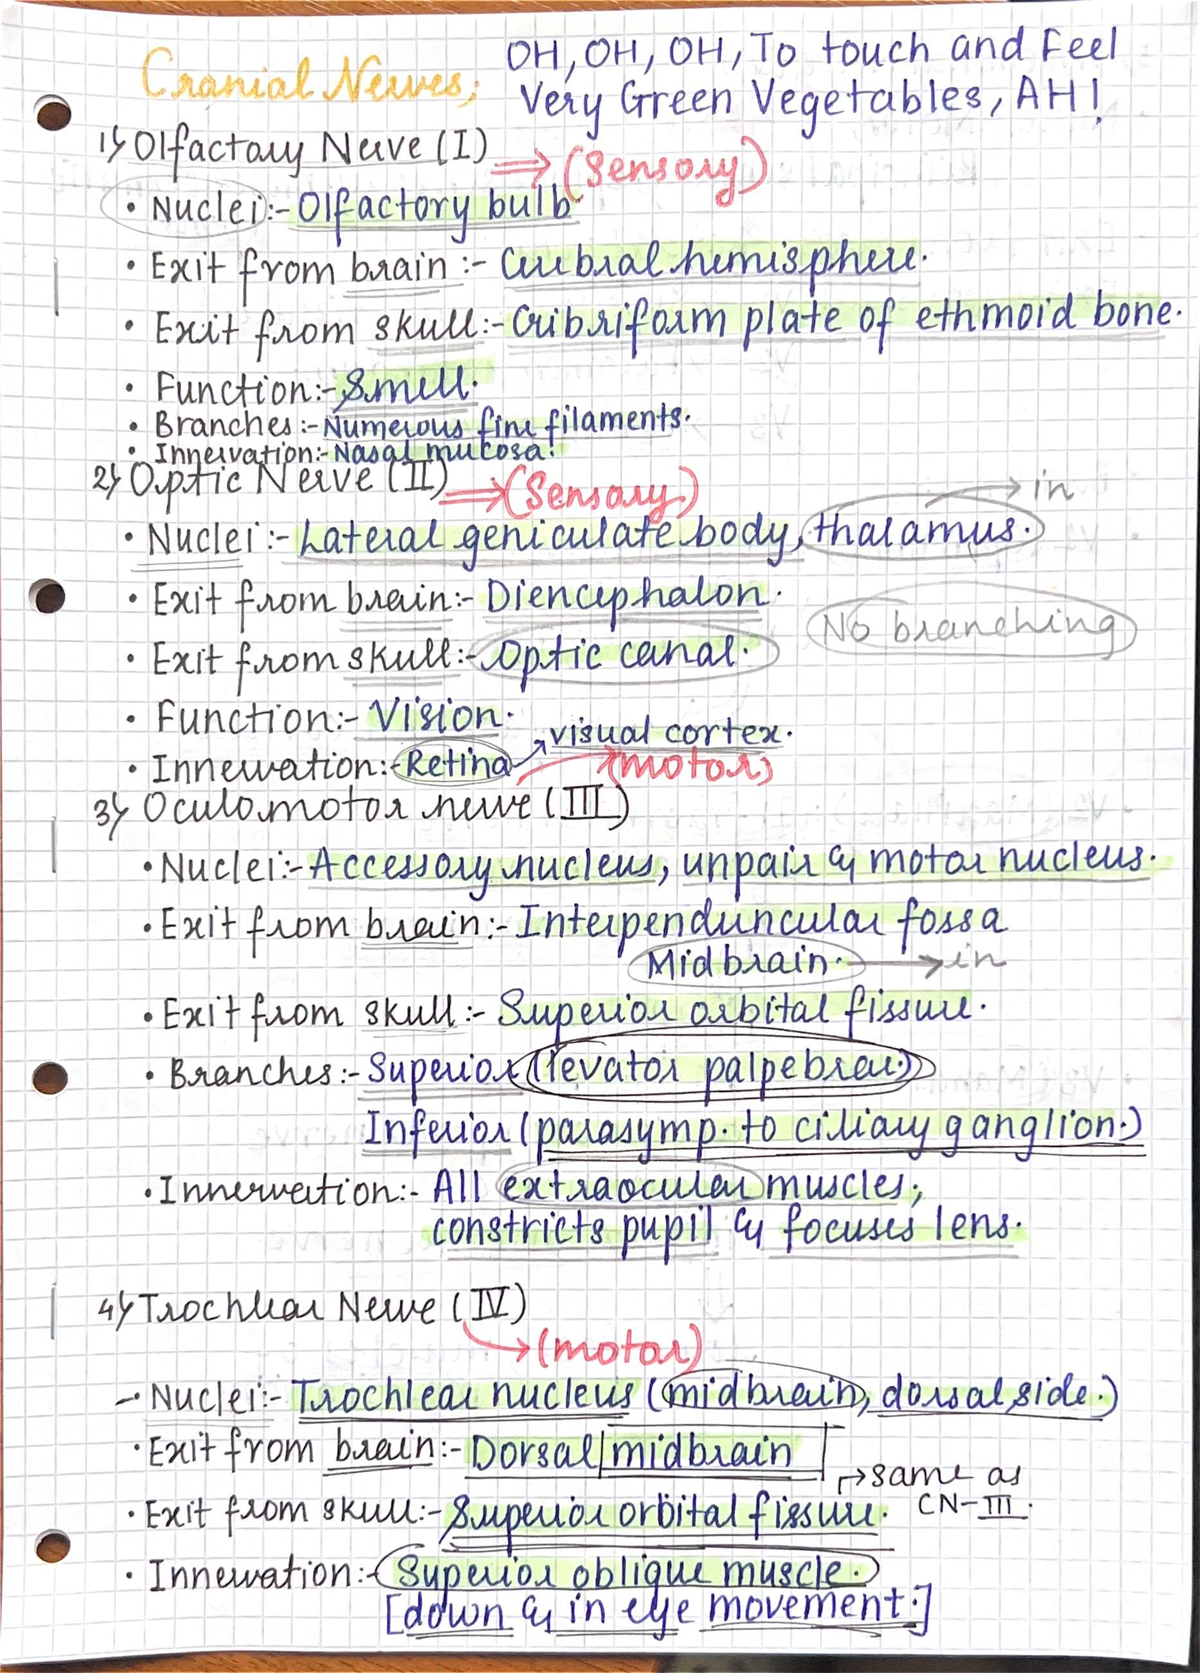 Cranial Nerves; OH, OH, OH, To touch and Feel
Very Green Vegetables, AH!
1) Olfactory Nerve (I) ⇒ (Sensory)
• Nuclei:- Olfactory bulb
• Exit from brain:- Cerebral hemisphere.
• Exit from skull:- Cribriform plate of ethmoid bone.
• Function:- Smell.
• Branches:- Numerous fine filaments.
• Innervation:- Nasal mucosa.
2) Optic Nerve (II) ⇒ (Sensory)
→ in
• Nuclei:- Lateral geniculate body, thalamus.
• Exit from brain:- Diencephalon.
No branching
• Exit from skull:- Optic canal.
• Function:- Vision.
• Innervation:- Retina → visual cortex.
3) Oculomotor nerve (III) → (motor)
• Nuclei:- Accessory nucleus, unpair & motor nucleus.
• Exit from brain:- Interpenduncular fossa
Midbrain. → in
• Exit from skull:- Superior orbital fissure.
• Branches:- Superior (levator palpebrae.)
Inferior (parasymp. to ciliary ganglion.)
• Innervation:- All extraocular muscles,
constricts pupil & focuses lens.
4) Trochlear Nerve (IV)
→ (motor)
- Nuclei:- Trochlear nucleus (midbrain, dorsal side.)
• Exit from brain:- Dorsal/midbrain
→ same as
• Exit from skull:- Superior orbital fissure. CN-III.
• Innervation:- Superior oblique muscle.
[down & in eye movement.]